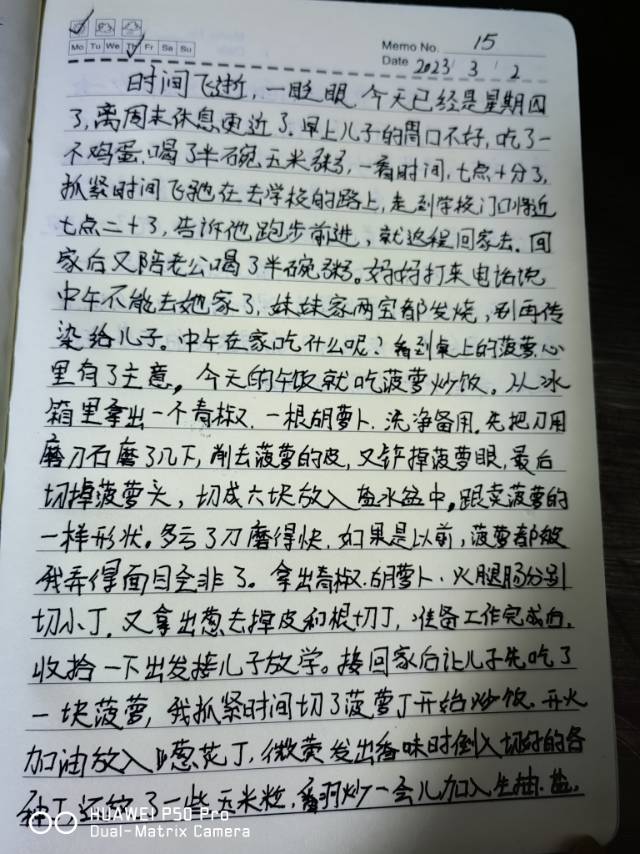 Mo Tu We Th Fr Sa Su
Memo No. 15
Date 2023 / 3 / 2
时间飞逝，一眨眼 今天已经是星期四
了，离周末休息更近了。早上儿子的胃口不好，吃了一
不鸡蛋，喝了半碗玉米粥，一看时间，七点十分了，
抓紧时间飞驰在去学校的路上，走到学校门口将近
七点二十了，告诉他跑步前进，就返程回家去。回
家后又陪老公喝了半碗粥。妈妈打来电话说
中午不能去她家了，妹妹家两宝都发烧，别再传
染给儿子。中午在家吃什么呢？看到桌上的菠萝心
里有了主意，今天的午饭就吃菠萝炒饭。从冰
箱里拿出一个青椒、一根胡萝卜、洗净备用。先把刀用
磨刀石磨了几下，削去菠萝的皮，又铲掉菠萝眼，最后
切掉菠萝头，切成六块放入盐水盆中，跟卖菠萝的
一样形状。多亏了刀磨得快，如果是以前，菠萝都被
我弄得面目全非了。拿出青椒、胡萝卜、火腿肠分别
切小丁，又拿出葱去掉皮和根切丁，准备工作完成后，
收拾一下出发接儿子放学。接回家后让儿子先吃了
一块菠萝，我抓紧时间切了菠萝丁开始炒饭。开火
加油放入葱花丁，微黄发出香味时倒入切好的各
种丁 还放了一些玉米粒，翻炒一会儿加入生抽、盐，
HUAWEI P50 Pro
Dual-Matrix Camera